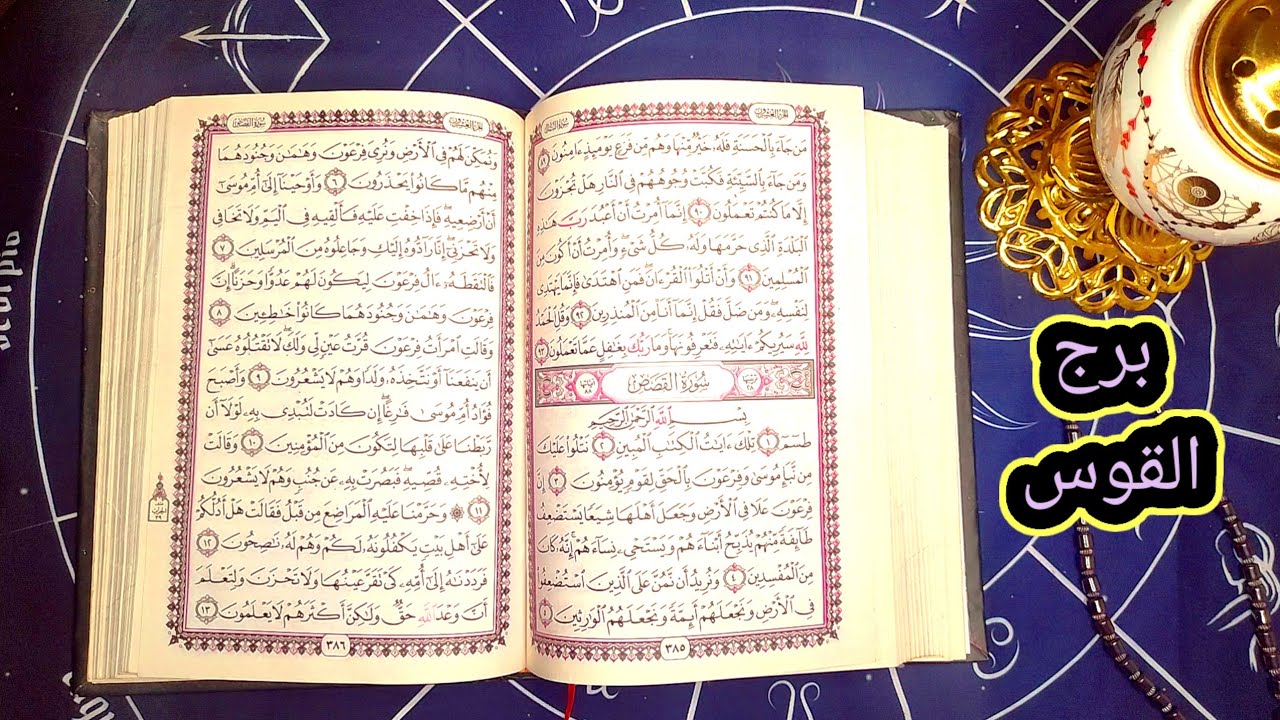 الجزء العشرون
سورة النمل
مَن جَآءَ بِٱلْحَسَنَةِ فَلَهُۥ خَيْرٌ مِّنْهَا وَهُم مِّن فَزَعٍ يَوْمَئِذٍ ءَامِنُونَ ٨٩
وَمَن جَآءَ بِٱلسَّيِّئَةِ فَكُبَّتْ وُجُوهُهُمْ فِى ٱلنَّارِ هَلْ تُجْزَوْنَ
إِلَّا مَا كُنتُمْ تَعْمَلُونَ ٩٠ إِنَّمَآ أُمِرْتُ أَنْ أَعْبُدَ رَبَّ هَٰذِهِ
ٱلْبَلْدَةِ ٱلَّذِى حَرَّمَهَا وَلَهُۥ كُلُّ شَىْءٍ وَأُمِرْتُ أَنْ أَكُونَ مِنَ
ٱلْمُسْلِمِينَ ٩١ وَأَنْ أَتْلُوَا۟ ٱلْقُرْءَانَ فَمَنِ ٱهْتَدَىٰ فَإِنَّمَا يَهْتَدِى
لِنَفْسِهِۦ وَمَن ضَلَّ فَقُلْ إِنَّمَآ أَنَا۠ مِنَ ٱلْمُنذِرِينَ ٩٢ وَقُلِ ٱلْحَمْدُ
لِلَّهِ سَيُرِيكُمْ ءَايَٰتِهِۦ فَتَعْرِفُونَهَا وَمَا رَبُّكَ بِغَٰفِلٍ عَمَّا تَعْمَلُونَ ٩٣
ترتيبها ٢٨ سُورَةُ القَصَصِ آياتها ٨٨
بِسْمِ ٱللَّهِ ٱلرَّحْمَٰنِ ٱلرَّحِيمِ
طسٓمٓ ١ تِلْكَ ءَايَٰتُ ٱلْكِتَٰبِ ٱلْمُبِينِ ٢ نَتْلُوا۟ عَلَيْكَ
مِن نَّبَإِ مُوسَىٰ وَفِرْعَوْنَ بِٱلْحَقِّ لِقَوْمٍ يُؤْمِنُونَ ٣ إِنَّ
فِرْعَوْنَ عَلَا فِى ٱلْأَرْضِ وَجَعَلَ أَهْلَهَا شِيَعًا يَسْتَضْعِفُ
طَآئِفَةً مِّنْهُمْ يُذَبِّحُ أَبْنَآءَهُمْ وَيَسْتَحْىِۦ نِسَآءَهُمْ إِنَّهُۥ كَانَ
مِنَ ٱلْمُفْسِدِينَ ٤ وَنُرِيدُ أَن نَّمُنَّ عَلَى ٱلَّذِينَ ٱسْتُضْعِفُوا۟
فِى ٱلْأَرْضِ وَنَجْعَلَهُمْ أَئِمَّةً وَنَجْعَلَهُمُ ٱلْوَٰرِثِينَ ٥
٣٨٥
الجزء العشرون
سورة القصص
وَنُمَكِّنَ لَهُمْ فِى ٱلْأَرْضِ وَنُرِىَ فِرْعَوْنَ وَهَٰمَٰنَ وَجُنُودَهُمَا
مِنْهُم مَّا كَانُوا۟ يَحْذَرُونَ ٦ وَأَوْحَيْنَآ إِلَىٰٓ أُمِّ مُوسَىٰٓ
أَنْ أَرْضِعِيهِ فَإِذَا خِفْتِ عَلَيْهِ فَأَلْقِيهِ فِى ٱلْيَمِّ وَلَا تَخَافِى
وَلَا تَحْزَنِىٓ إِنَّا رَآدُّوهُ إِلَيْكِ وَجَاعِلُوهُ مِنَ ٱلْمُرْسَلِينَ ٧
فَٱلْتَقَطَهُۥٓ ءَالُ فِرْعَوْنَ لِيَكُونَ لَهُمْ عَدُوًّا وَحَزَنًا إِنَّ
فِرْعَوْنَ وَهَٰمَٰنَ وَجُنُودَهُمَا كَانُوا۟ خَٰطِـِٔينَ ٨
وَقَالَتِ ٱمْرَأَتُ فِرْعَوْنَ قُرَّتُ عَيْنٍ لِّى وَلَكَ لَا تَقْتُلُوهُ عَسَىٰٓ
أَن يَنفَعَنَآ أَوْ نَتَّخِذَهُۥ وَلَدًا وَهُمْ لَا يَشْعُرُونَ ٩ وَأَصْبَحَ
فُؤَادُ أُمِّ مُوسَىٰ فَٰرِغًا إِن كَادَتْ لَتُبْدِى بِهِۦ لَوْلَآ أَن
رَّبَطْنَا عَلَىٰ قَلْبِهَا لِتَكُونَ مِنَ ٱلْمُؤْمِنِينَ ١٠ وَقَالَتْ
لِأُخْتِهِۦ قُصِّيهِ فَبَصُرَتْ بِهِۦ عَن جُنُبٍ وَهُمْ لَا يَشْعُرُونَ
١١ ۞ وَحَرَّمْنَا عَلَيْهِ ٱلْمَرَاضِعَ مِن قَبْلُ فَقَالَتْ هَلْ أَدُلُّكُمْ
عَلَىٰٓ أَهْلِ بَيْتٍ يَكْفُلُونَهُۥ لَكُمْ وَهُمْ لَهُۥ نَٰصِحُونَ ١٢
فَرَدَدْنَٰهُ إِلَىٰٓ أُمِّهِۦ كَىْ تَقَرَّ عَيْنُهَا وَلَا تَحْزَنَ وَلِتَعْلَمَ
أَنَّ وَعْدَ ٱللَّهِ حَقٌّ وَلَٰكِنَّ أَكْثَرَهُمْ لَا يَعْلَمُونَ ١٣
٣٨٦
برج
القوس